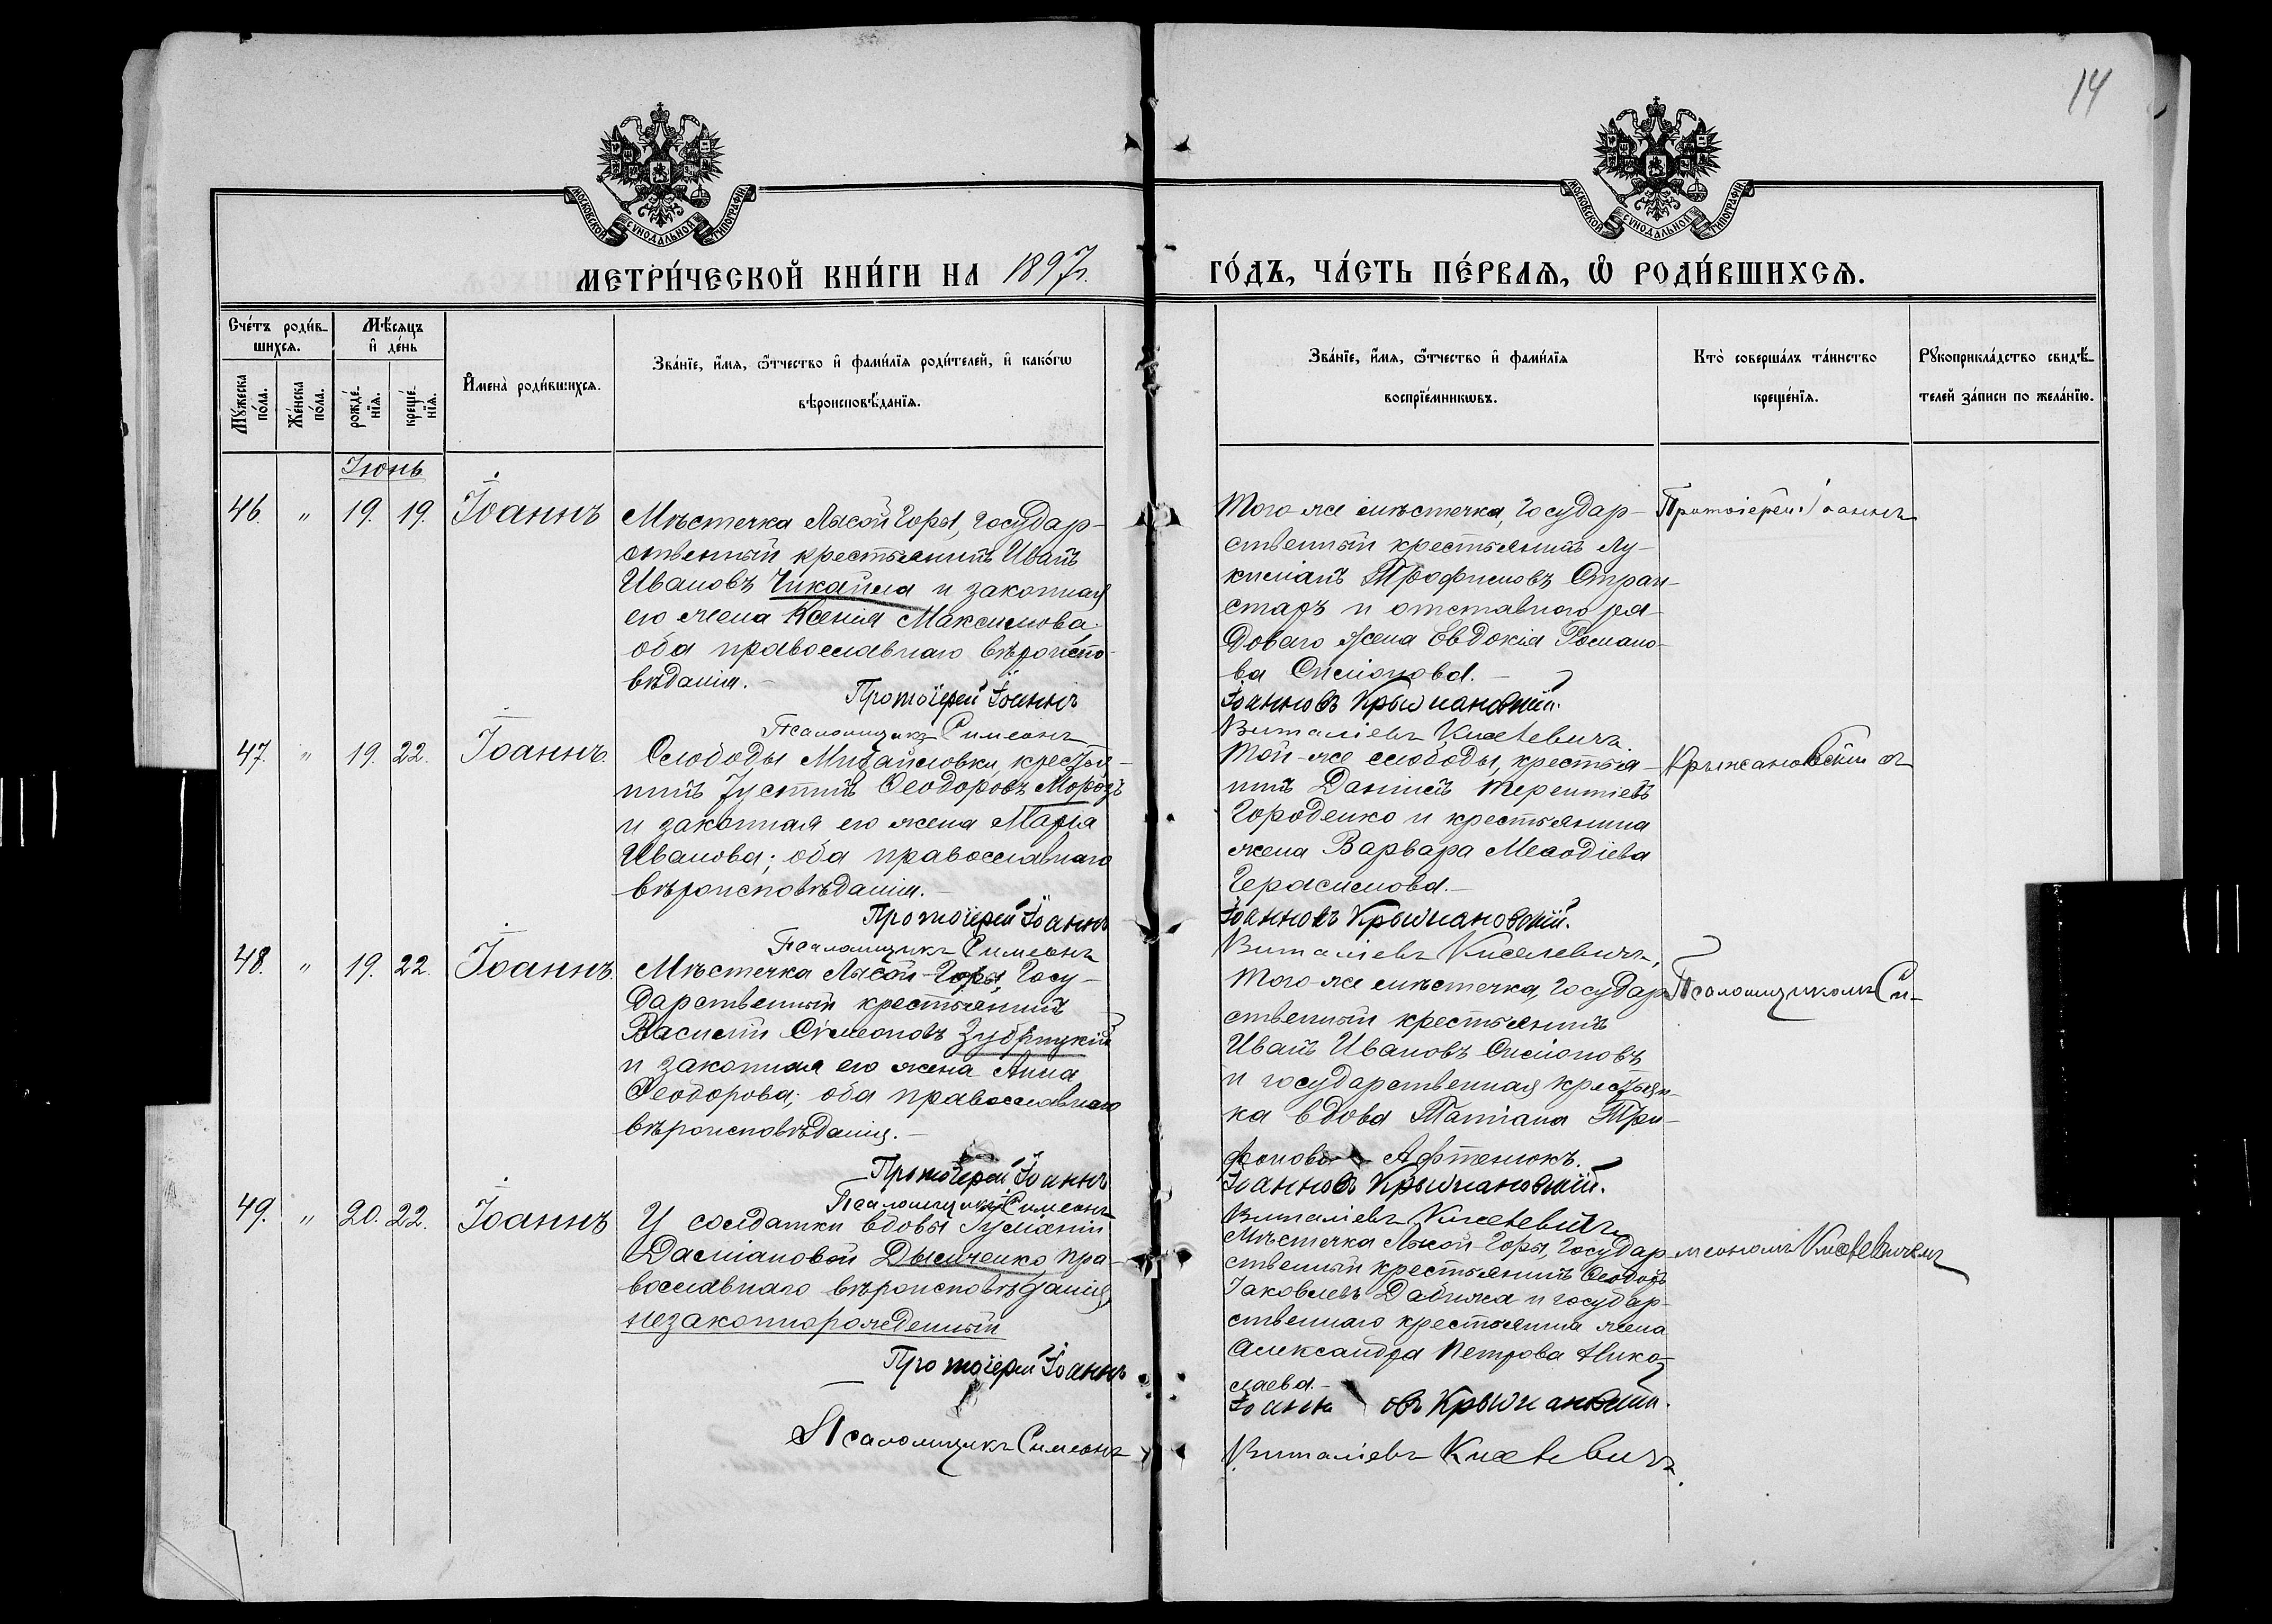 14
МОСКОВСКОЙ СѴНОДАЛЬНОЙ ТИПОГРАФІИ
МОСКОВСКОЙ СѴНОДАЛЬНОЙ ТИПОГРАФІИ
МЕТРИ́ЧЕСКОЙ КНИ́ГИ НА 1897 г. ГО́ДЪ, ЧА́СТЬ ПЕ́РВАЯ, Ѡ РОДИ́ВШИХСЯ.
Сче́тъ роди́в-
шихся.
Мѣ́сяцъ
и де́нь
Мꙋ́жеска
по́ла.
Же́нска
по́ла.
рожде́-
нїя.
креще́-
нїя.
Имена̀ роди́вшихся.
Зва́нїе, и́мя, ѻ́тчество и фами́лїя роди́телей, и како́гѡ
вѣроисповѣ́данїя.
Зва́нїе, и́мя, ѻ́тчество и фами́лїя
воспрїе́мникѡвъ.
Кто̀ соверша́лъ та́инство
креще́нїя.
Рꙋкоприкла́дство свидѣ́-
телей за́писи по жела́нїю.
Іюнь
46. " 19. 19. Іоаннъ
Мѣстечка Лысой Горы, государ-
ственный крестьянинъ Иванъ
Ивановъ Чикайла и законная
его жена Ксенія Максимова
оба православнаго вѣроиспо-
вѣданія.-
Протоіерей Іоаннъ
Псаломщикъ Симеонъ
Того же мѣстечка, государ-
ственный крестьянинъ Лу-
кианъ Трофимовъ Стран-
старъ и отставного ря-
доваго жена Евдокія Романо-
ва Симонова.-
Іоанновъ Крыжановскій.
Виталіевъ Киселевичъ.
Протоіерей Іоаннъ
47. " 19. 22. Іоаннъ.
Слободы Михайловки, крестья-
нинъ Іустинъ Ѳеодоровъ Морозъ
и законная его жена Марія
Иванова; оба православнаго
вѣроисповѣданія.-
Протоіерей Іоаннъ
Псаломщикъ Симеонъ
Той-же слободы, крестья-
нинъ Даніилъ Терентіевъ
Городенко и крестьянина
жена Варвара Меѳодіева
Герасимова.-
Іоанновъ Крыжановскій.
Виталіевъ Киселевичъ.
Крыжановскій съ
48. " 19. 22. Іоаннъ.
Мѣстечка Лысой-Горы, Госу-
дарственный крестьянинъ
Василій Симеоновъ Зубрицкій
и законная его жена Анна
Ѳеодорова; оба православнаго
вѣроисповѣданія.-
Протоіерей Іоаннъ
Псаломщикъ Симеонъ
Того-же мѣстечка, государ-
ственный крестьянинъ
Иванъ Ивановъ Симоновъ
и государственная крестьян-
ка вдова Татіана Три-
фонова Афтенюкъ.
Іоанновъ Крыжановскій.
Виталіевъ Киселевичъ
Псаломщикомъ Си-
49. " 20. 22. Іоаннъ
У солдатки вдовы Іуліаніи
Даміановой Дьяченко, пра-
вославнаго вѣроисповѣданія,
незаконнорожденный
Протоіерей Іоаннъ
Псаломщикъ Симеонъ
Мѣстечка Лысой-Горы, Государ-
ственный крестьянинъ Ѳеодоръ
Іаковлевъ Дабижа и государ-
ственнаго крестьянина жена
Александра Петрова Нико-
лаева.-
Іоанновъ Крыжановскій.
Виталіевъ Киселевичъ.
меономъ Киселевичемъ